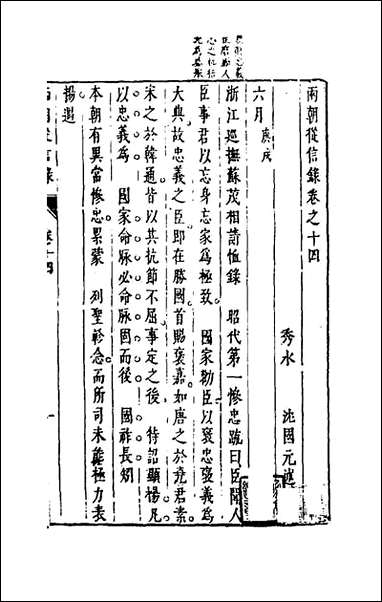 兩朝從信錄卷之十四
秀水 沈國元
六月 庚戌
浙江巡撫蘇茂相請恤錄 昭代第一慘忠疏曰臣聞人
臣事君以忘身忘家為極致 國家勸臣以褒忠褒義為
大典故忠義之臣即在勝國首賜褒嘉如唐之於堯君素
宋之於韓通皆以其抗節不屈事定之後 特詔顯揚凡
以忠義為 國家命脉必命脉固而後 國祚長矧
本朝有異當慘忠累蒙 列聖軫念而所司未能極力表
揚遐
卷十四